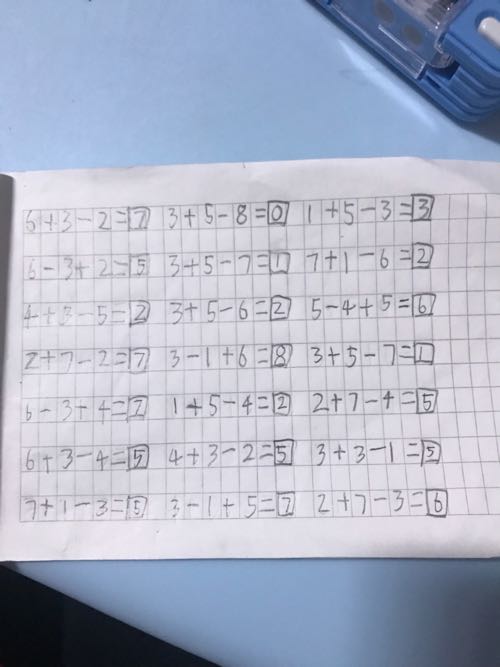 6+3-2=7 3+5-8=0 1+5-3=3
6-3+2=5 3+5-7=1 7+1-6=2
4+3-5=2 3+5-6=2 5-4+5=6
2+7-2=7 3-1+6=8 3+5-7=1
6-3+4=7 1+5-4=2 2+7-4=5
6+3-4=5 4+3-2=5 3+3-1=5
7+1-3=5 3-1+5=7 2+7-3=6